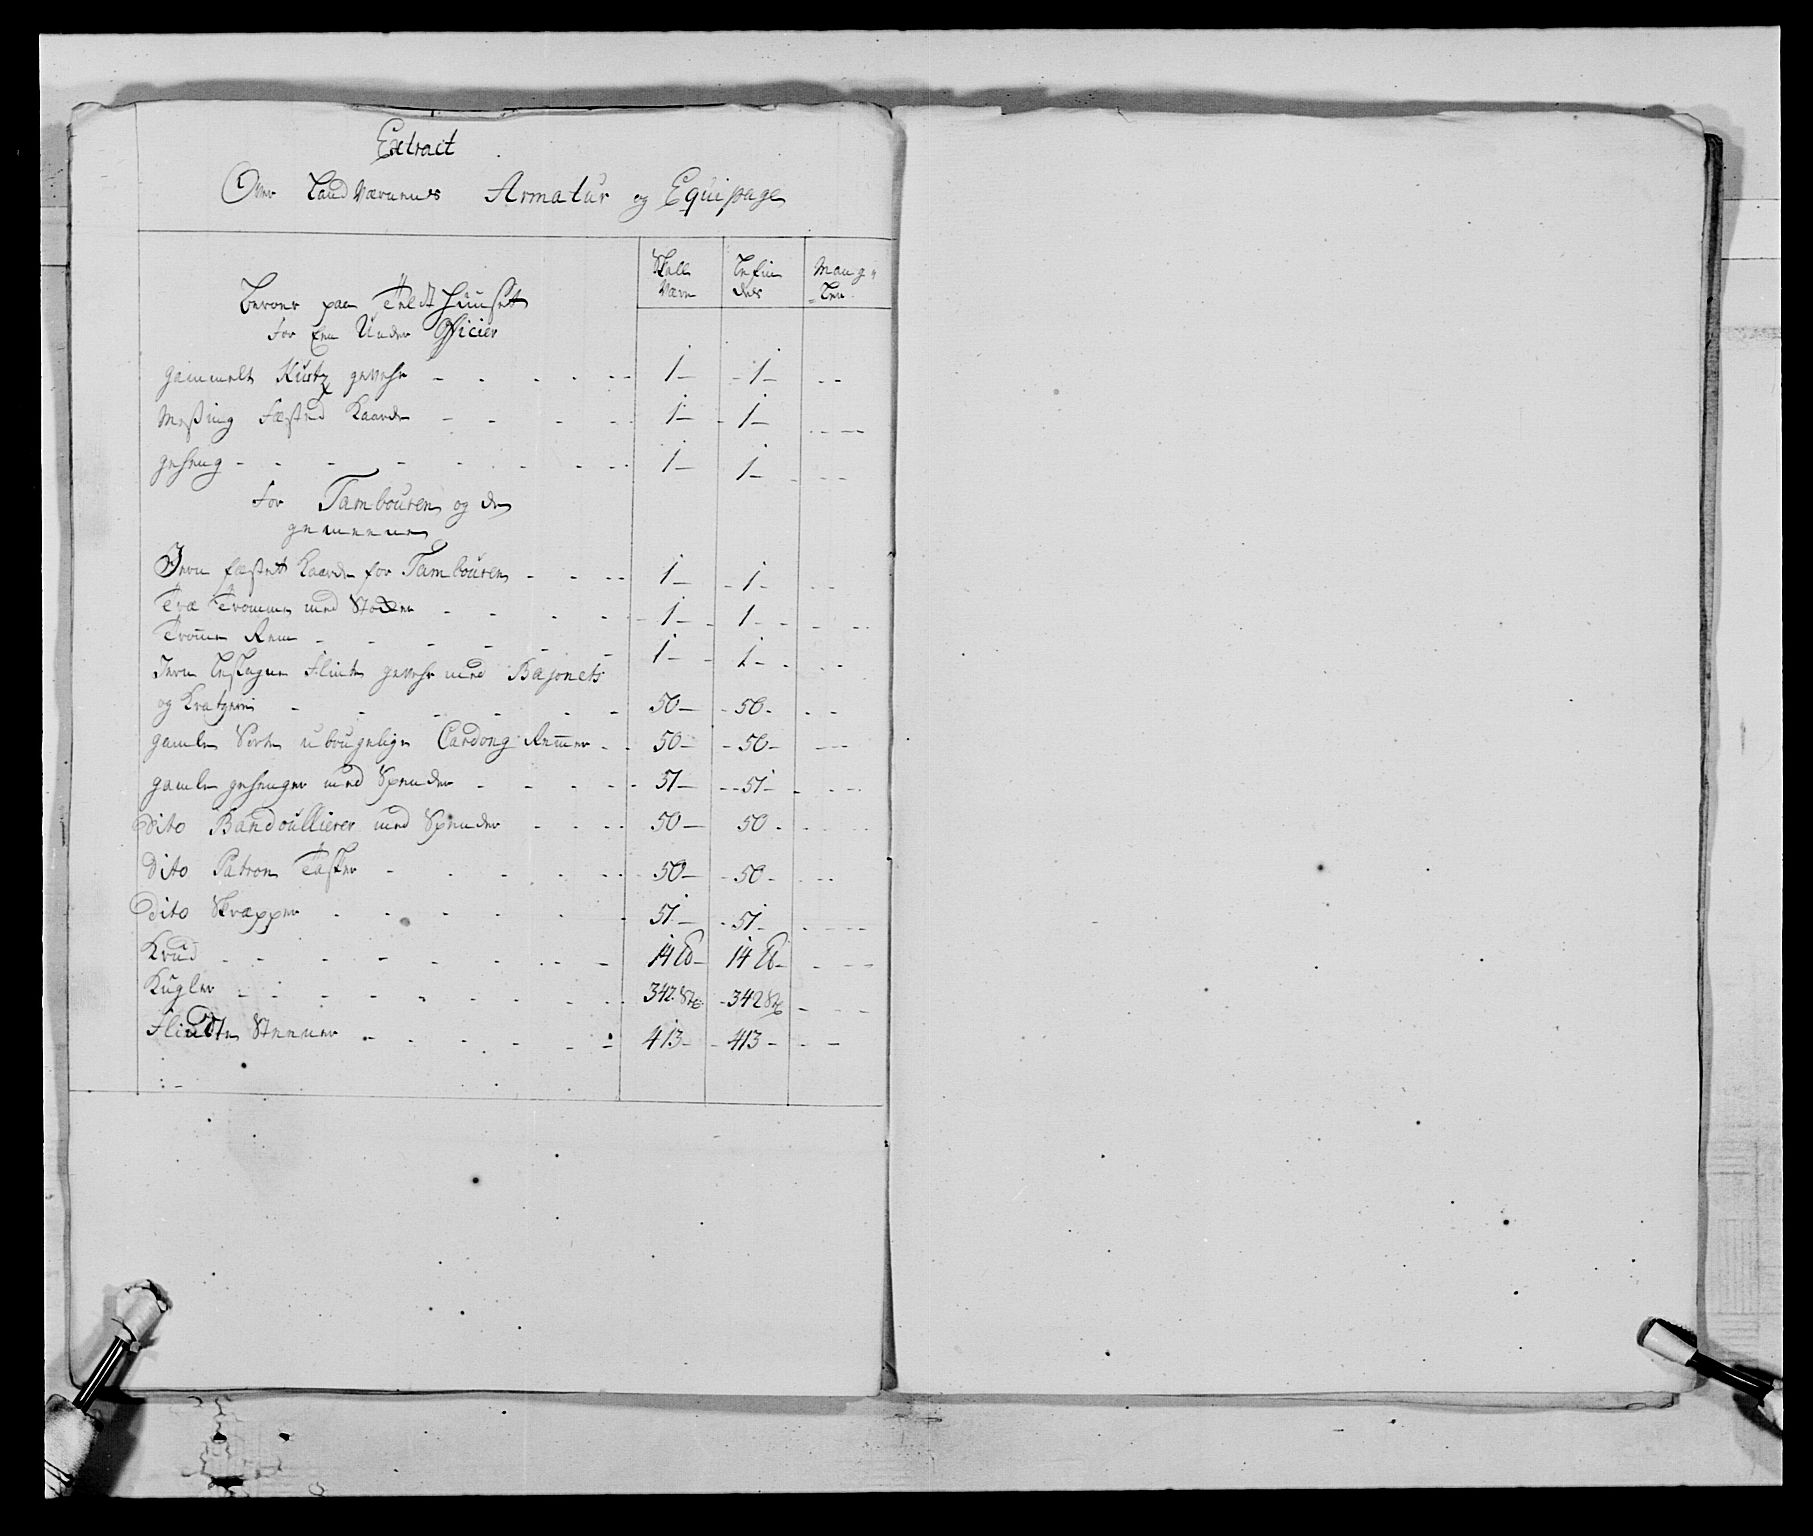 Extract
Over Land Værnenes Armatur og Equipage
Skall Være | Befin des | Mang- len
Beroer paa Teldt Huuset
For Een Under Officier
gammelt Kurtz gevehr - 1 - 1 - -
Messing Fæsted Kaarde - 1 - 1 - -
geheng - 1 - 1 - -
For Tambouren og de
gemeene
Jern fæstett Kaarde for Tambouren - 1 - 1 - -
Træ Tromme med Stokker - 1 - 1 - -
Trome Rem - 1 - 1 - -
Jern beslagne Flinte gevehr med Bajonets
og Kratzere - 50 - 50 - -
gamle Sorte ubrugelige Cardong Remer - 50 - 50 - -
gamle gehenger med Spender - 51 - 51 - -
Dito Bandoullierer med Spender - 50 - 50 - -
Dito Patron Tasker - 50 - 50 - -
Dito Skræpper - 51 - 51 - -
Krud - 14 lb - 14 lb - -
Kugler - 342 Stk - 342 Stk - -
Flindte Steener - 413 - 413 - -